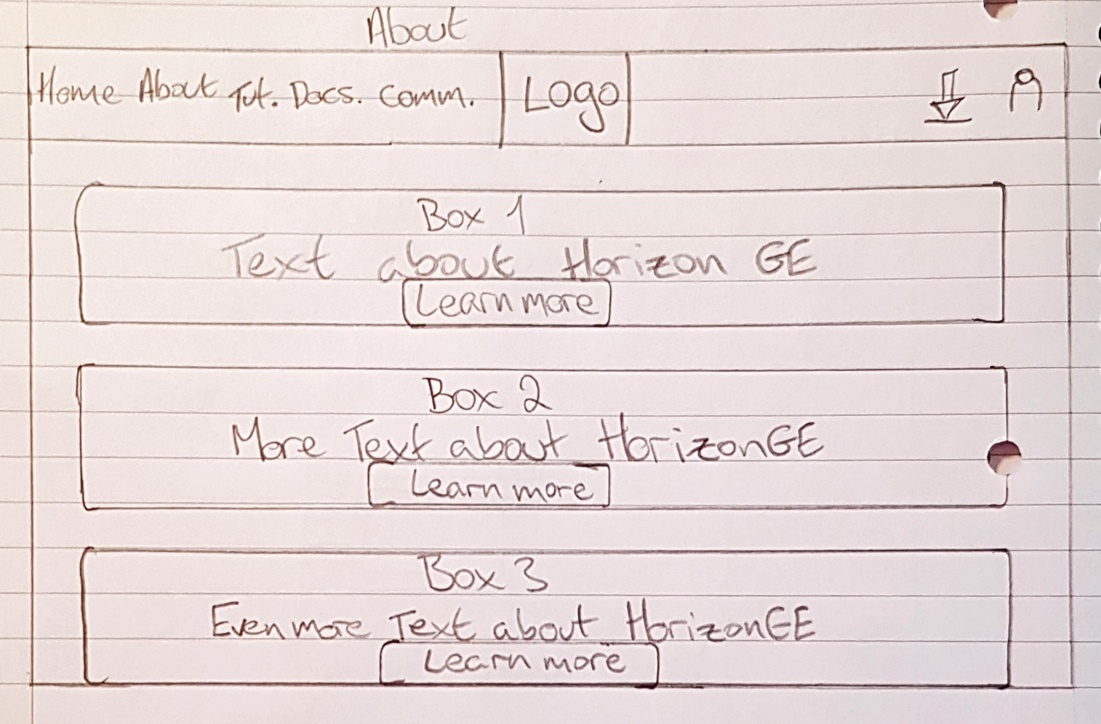 About
Home About Tut. Docs. Comm. Logo
Box 1
Text about Horizon GE
Learn more
Box 2
More Text about HorizonGE
Learn more
Box 3
Even more Text about HorizonGE
Learn more